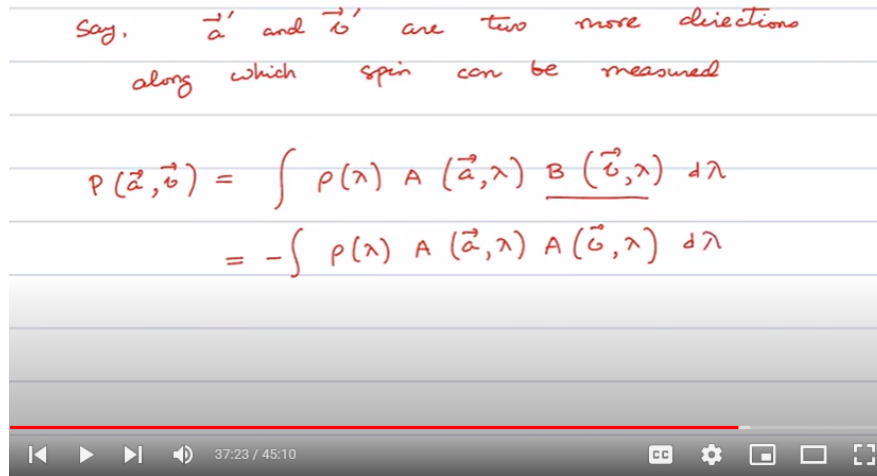 Say, a⃗′ and b⃗′ are two more directions
along which spin can be measured
P(a⃗,b⃗) = ∫ ρ(λ) A (a⃗,λ) B (b⃗,λ) dλ
= -∫ ρ(λ) A (a⃗,λ) A(b⃗,λ) dλ
37:23 / 45:10 CC